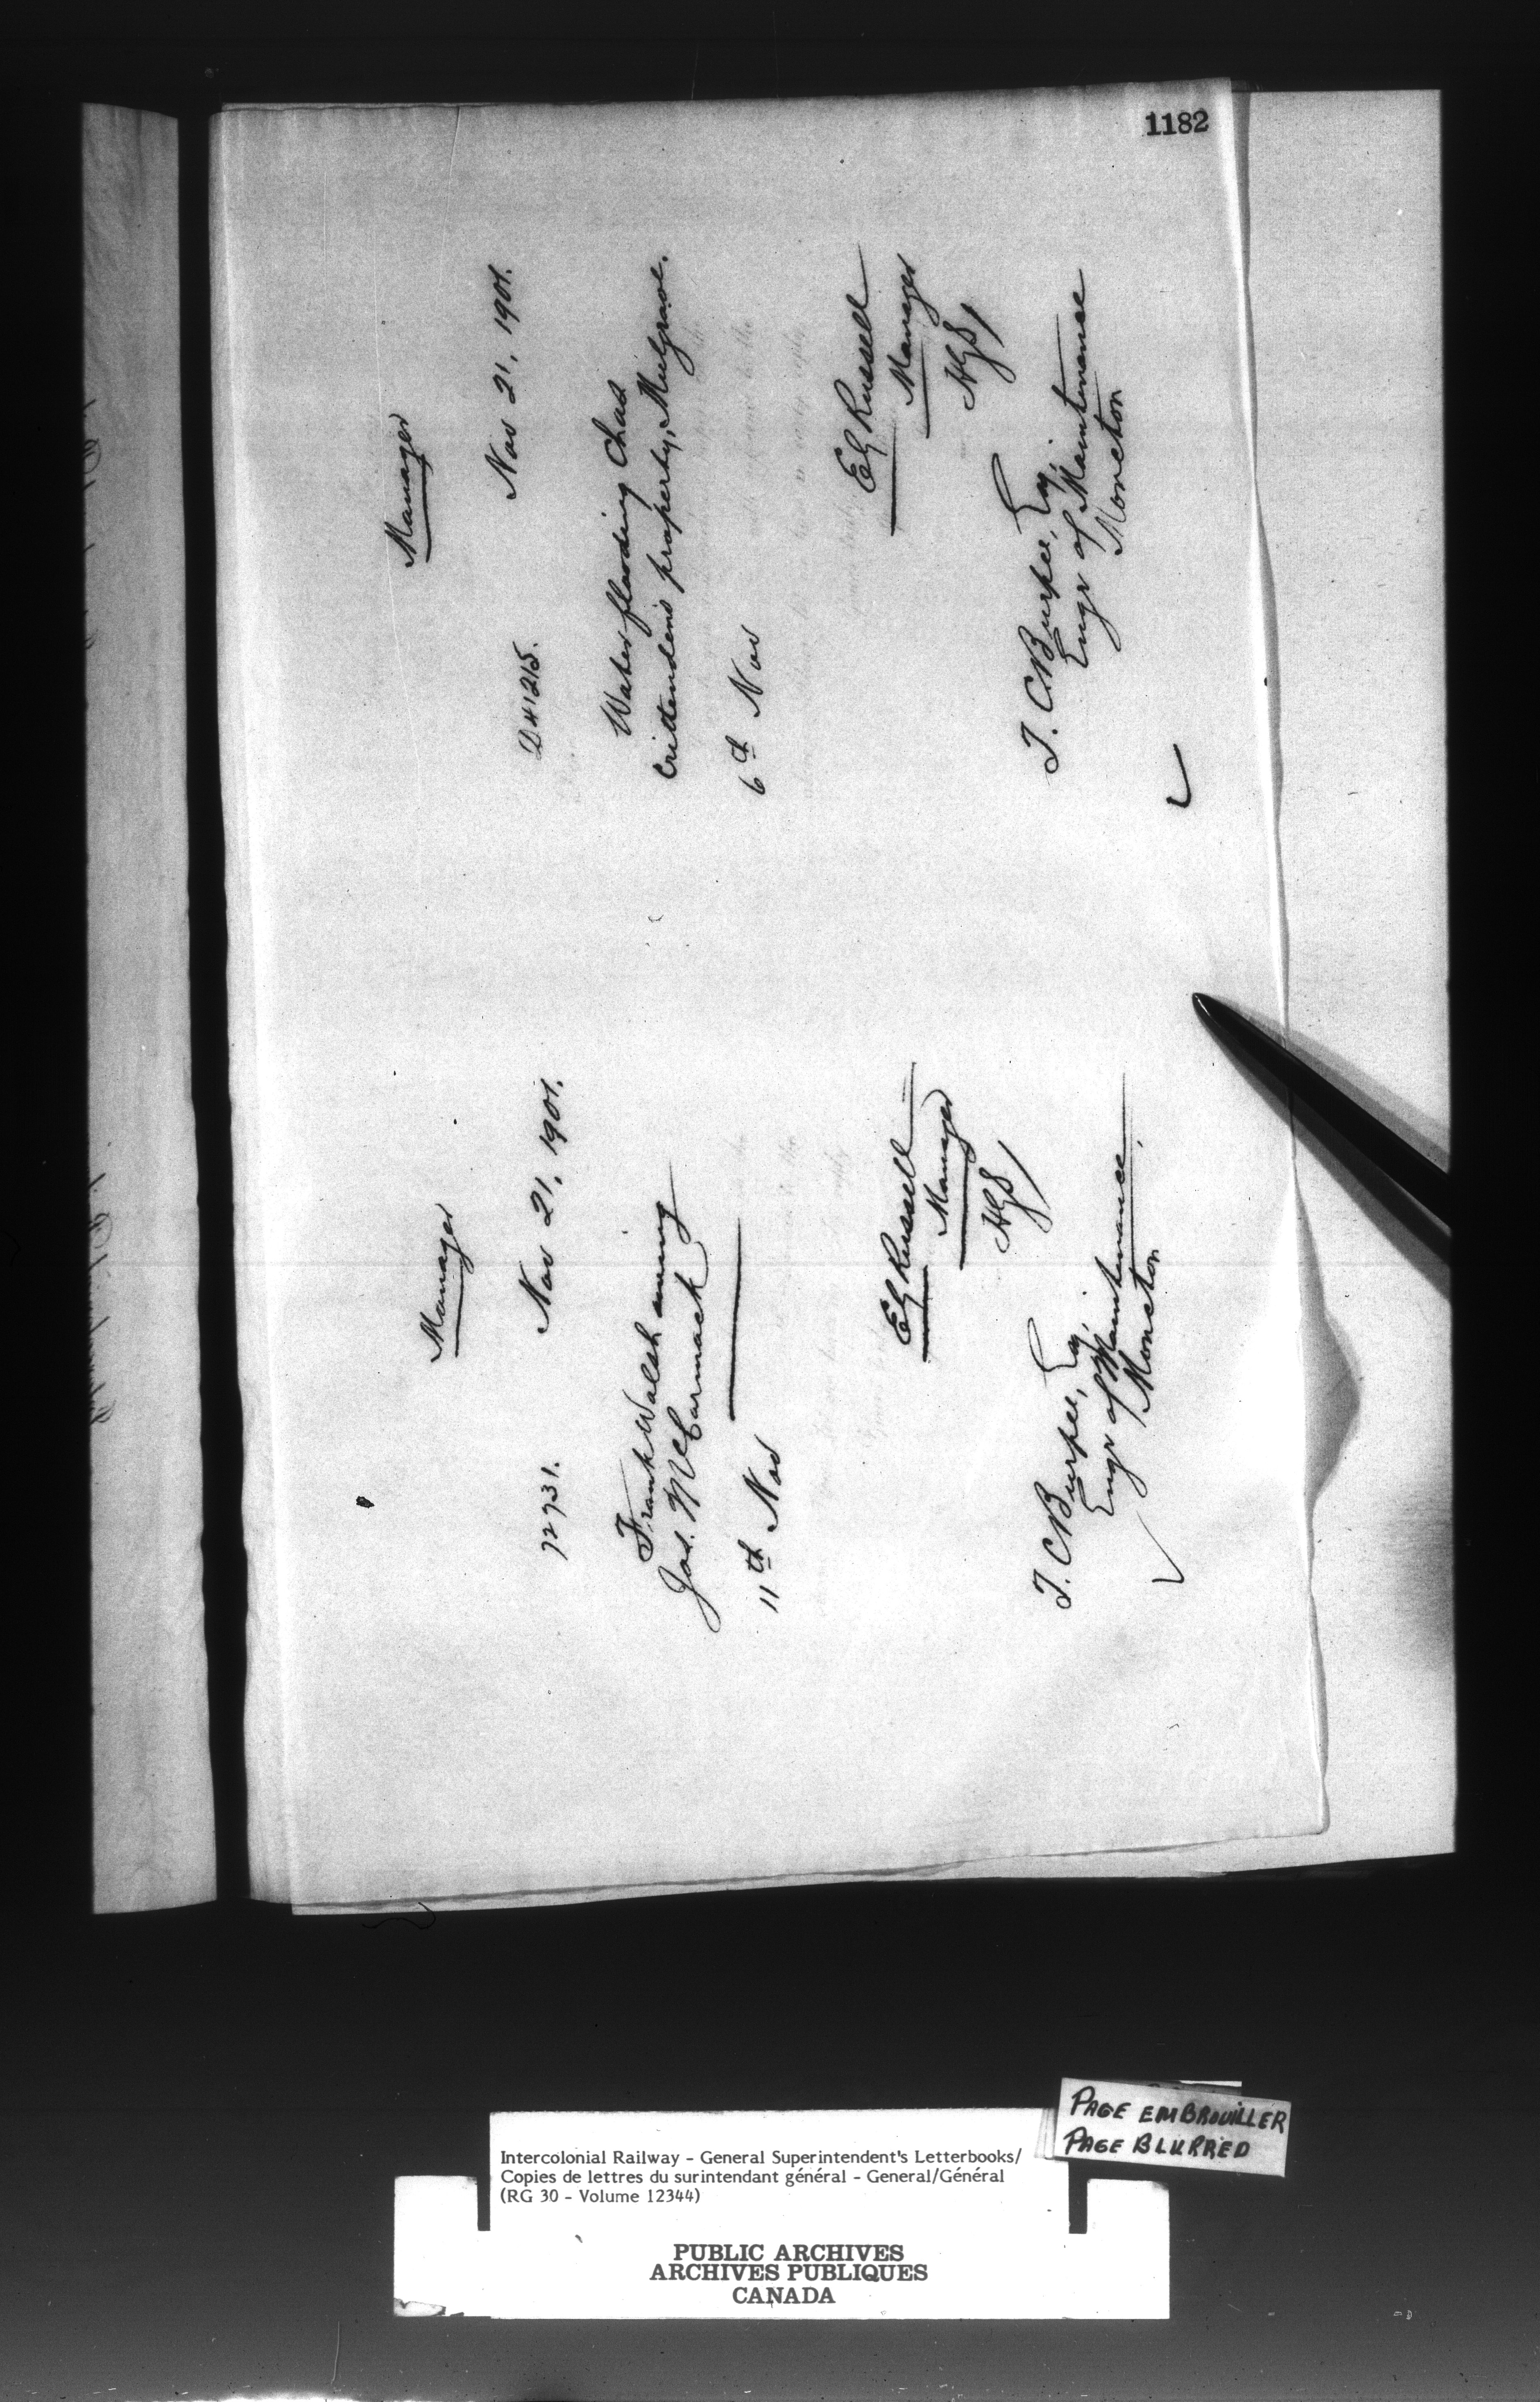 1182
Manager
72731.
Nov 21, 1901.
Frank Walsh owing
Jas. McCormack
11th Nov
EG Russell
Manager
T. C Burpee, Esq,
Engr of Maintenance,
Moncton
Manager
D41215.
Nov 21, 1901.
Water flooding Chas
Crittenden's property, Mulgrave.
6th Nov
EG Russell
Manager
T. C Burpee, Esq,
Engr of Maintenance
Moncton
PAGE EMBROUILLER
PAGE BLURRED
Intercolonial Railway - General Superintendent's Letterbooks/
Copies de lettres du surintendant général - General/Général
(RG 30 - Volume 12344)
PUBLIC ARCHIVES
ARCHIVES PUBLIQUES
CANADA